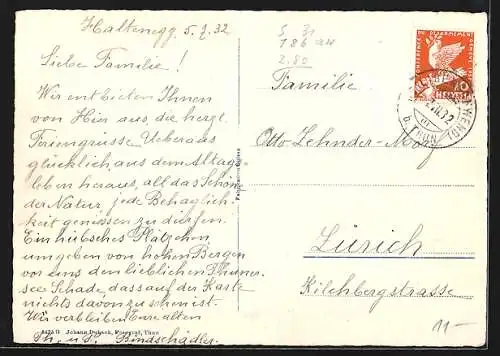 Haltenegg 5. 7. 32
Liebe Familie!
Wir entbieten Ihnen
von Hier aus, die herzl.
Feriengrüsse. Ueberaus
glücklich, aus dem Alltags-
leben heraus, all das Schöne
der Natur, jede Behaglich-
keit geniessen zu dürfen.
Ein hübsches Plätzchen
umgeben von hohen Bergen
vor uns den lieblichen Thuner-
see. Schade, dass auf der Karte
nichts davon zu sehen ist.
Wir verbleiben Eure alten
Th. u. P. Bindschädler.
Johann Thun
S 31
186 an
2.80
Familie
Otto Zehnder-Moy
Zürich
Kilchbergstrasse
11-
HELVETIA
b. THUN